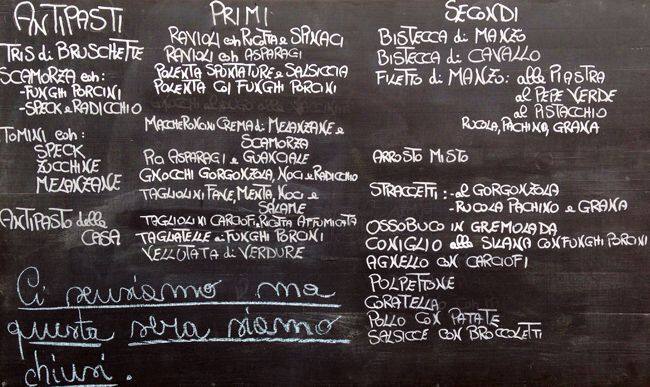 ANTIPASTI
TRIS di BRUSCHETTE
SCAMORZA con:
-FUNGHI PORCINI
-SPECK e RADICCHIO
TOMINI con:
SPECK
ZUCCHINE
MELANZANE
ANTIPASTO della
CASA
PRIMI
RAVIOLI con RICOTTA e SPINACI
RAVIOLI con ASPARAGI
POLENTA SPUNTATURE e SALSICCIA
POLENTA COI FUNGHI PORCINI
MACCHERONCINI CREMA di MELANZANE e
SCAMORZA
ASPARAGI e GUANCIALE
GNOCCHI GORGONZOLA, NOCI e RADICCHIO
TAGLIOLINI FAVE, MENTA, NOCI e
SALAME
TAGLIOLINI CARCIOFI e RICOTTA AFFUMICATA
TAGLIATELLE ai FUNGHI PORCINI
VELLUTATA di VERDURE
SECONDI
BISTECCA di MANZO
BISTECCA di CAVALLO
FILETTO di MANZO: alla PIASTRA
al PEPE VERDE
al PISTACCHIO
RUCOLA, PACHINO, GRANA
ARROSTO MISTO
STRACCETTI: -al GORGONZOLA
-RUCOLA PACHINO e GRANA
OSSOBUCO IN GREMOLADA
CONIGLIO alla SILANA CON FUNGHI PORCINI
AGNELLO CON CARCIOFI
POLPETTONE
CORATELLA
POLLO CON PATATE
SALSICCE CON BROCCOLETTI
Ci scusiamo ma
questa sera siamo
chiusi.